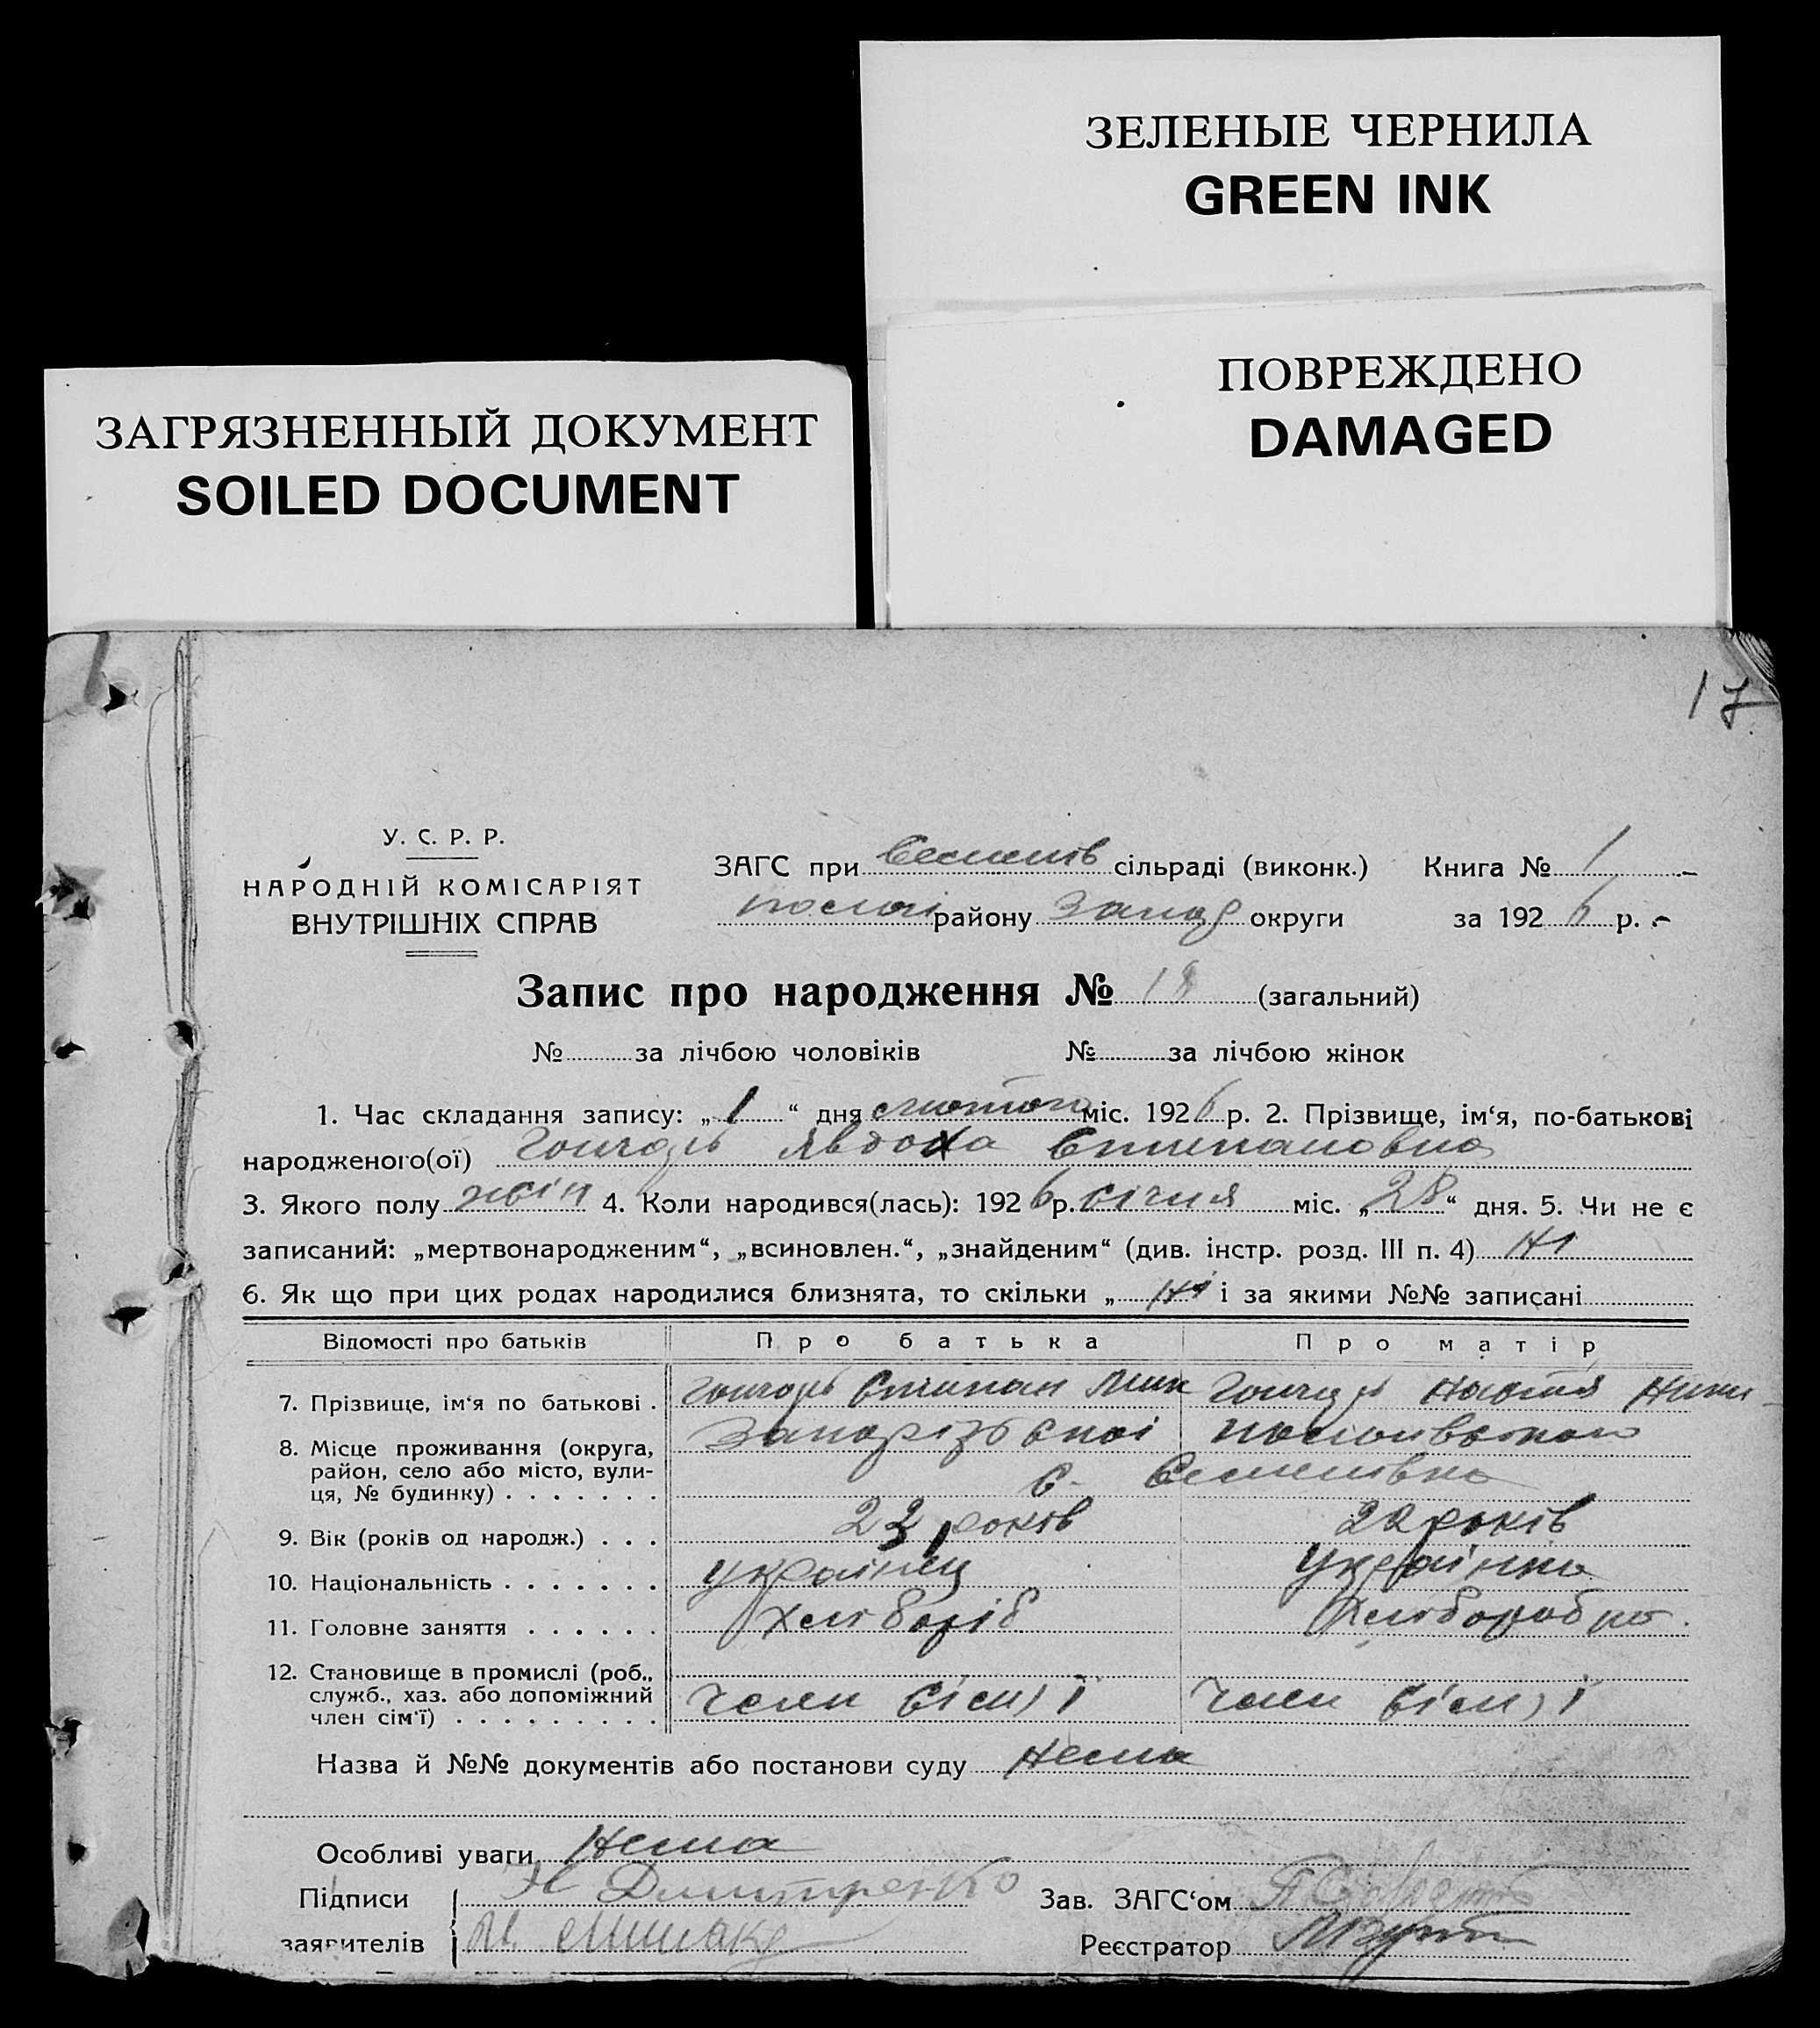 ЗЕЛЕНЫЕ ЧЕРНИЛА
GREEN INK
ПОВРЕЖДЕНО
DAMAGED
ЗАГРЯЗНЕННЫЙ ДОКУМЕНТ
SOILED DOCUMENT
17
У. С. Р. Р.
НАРОДНІЙ КОМІСАРІЯТ
ВНУТРІШНІХ СПРАВ
ЗАГС при сільраді (виконк.) Книга № 1
району округи за 1926 р.
Запис про народження № 18 (загальний)
№ за лічбою чоловіків № за лічбою жінок
1. Час складання запису: „1“ дня лютого міс. 1926 р. 2. Прізвище, ім‘я, по-батькові
народженого(ої) Гончарь Явдоха Степановна
3. Якого полу жін 4. Коли народився(лась): 1926 р. січня міс. „28“ дня. 5. Чи не є
записаний: „мертвонародженим“, „всиновлен.“, „знайденим“ (див. інстр. розд. III п. 4) Ні
6. Як що при цих родах народилися близнята, то скільки „ Ні і за якими №№ записані
Відомості про батьків Про батька Про матір
7. Прізвище, ім‘я по батькові . Гончарь Степан Гончарь Настя
8. Місце проживання (округа, Запорізької
район, село або місто, вули-
ця, № будинку) . . . . . . . с.
9. Вік (років од народж.) . . . років 22 років
10. Національність . . . . . . . українец українка
11. Головне заняття . . . . . . хлібороб хлібороб
12. Становище в промислі (роб.,
служб., хаз. або допоміжний
член сім‘ї) . . . . . . . . . член сісм,ї член сісм,ї
Назва й №№ документів або постанови суду Нема
Особливі уваги Нема
Підписи Н Дмитренко Зав. ЗАГС‘ом
заявителів М. Реєстратор